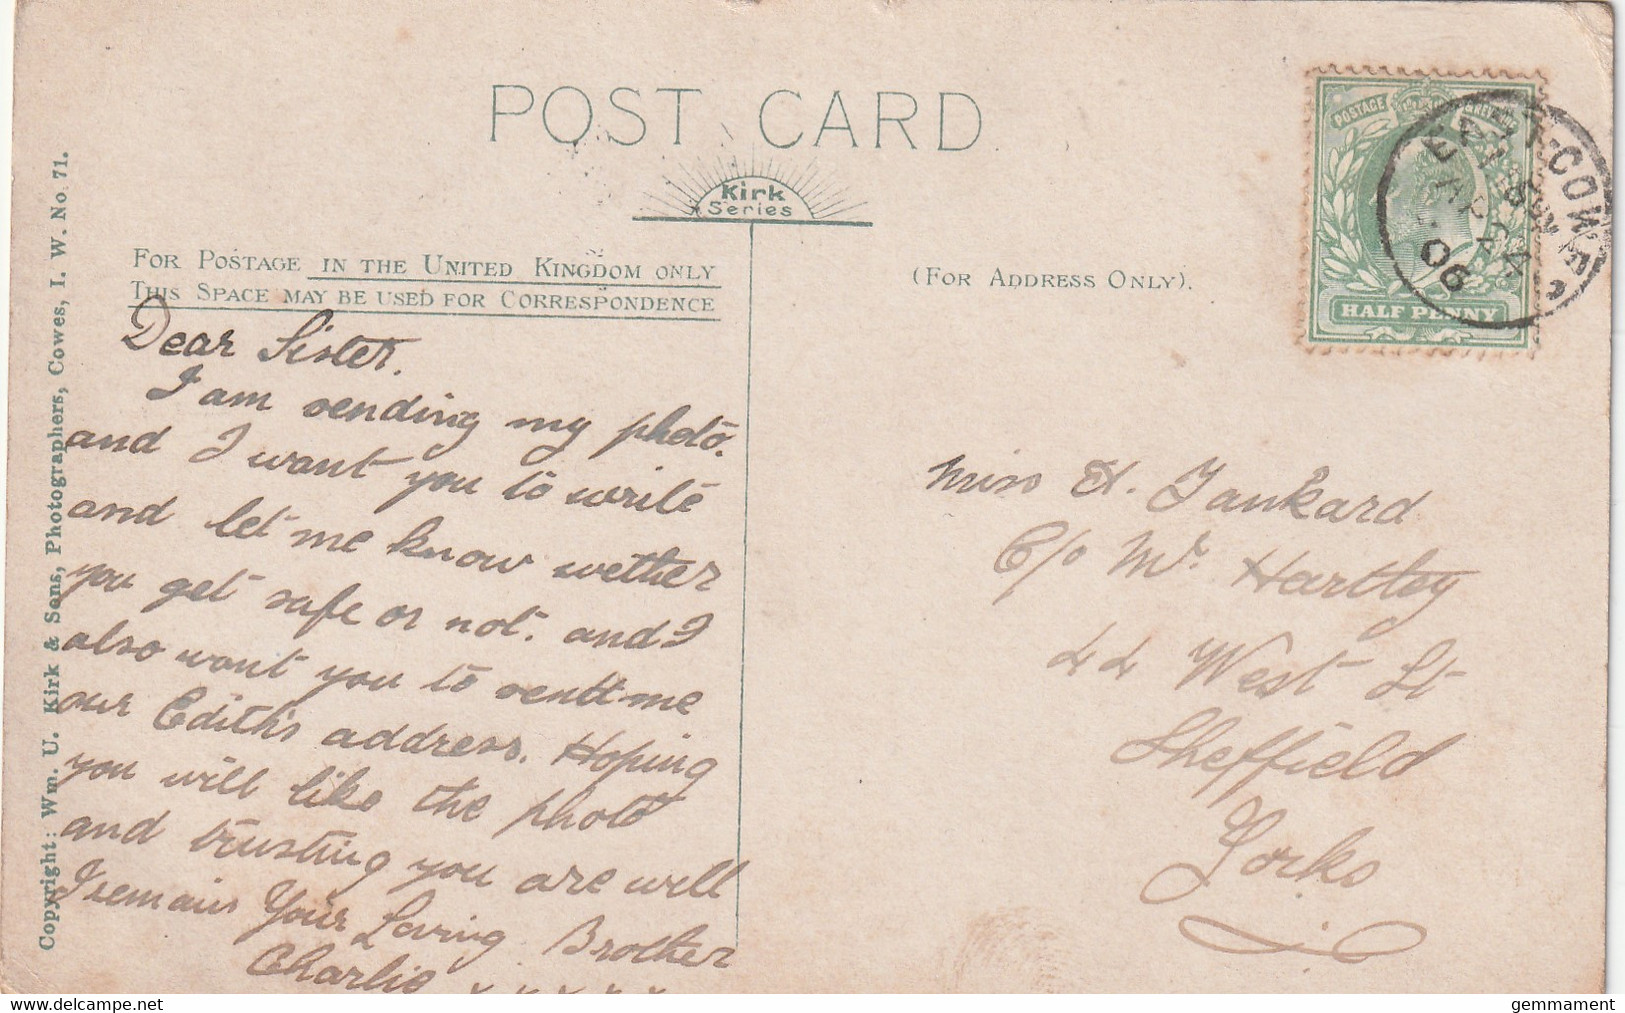 POST CARD
Kirk
Series
FOR POSTAGE IN THE UNITED KINGDOM ONLY
THIS SPACE MAY BE USED FOR CORRESPONDENCE
(FOR ADDRESS ONLY).
POSTAGE
HALF PENNY
EAST COWES
AP 24
06
Dear Sister.
I am sending my photo.
and I want you to write
and let me know wether
you get safe or not. and I
also want you to send me
our Edith's address. Hoping
you will like the photo
and trusting you are well
I remain Your Loving Brother
Charlie x x x x x
Miss H. Tankard
C/o Mr Hartley
44 West St
Sheffield
Yorks
Copyright: Wm. U. Kirk & Sons, Photographers, Cowes, I. W. No. 71.
www.delcampe.net
gemmament